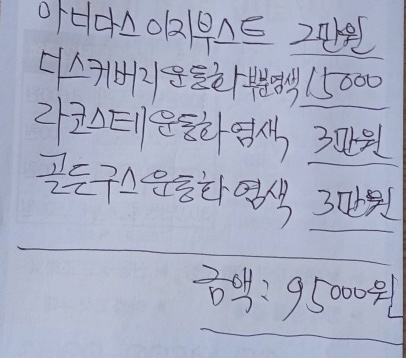 아디다스 이지부스트 2만원
디스커버리 운동화 부분염색 15000
라코스테 운동화 염색 3만원
골든구스 운동화 염색 3만원
금액: 95000원